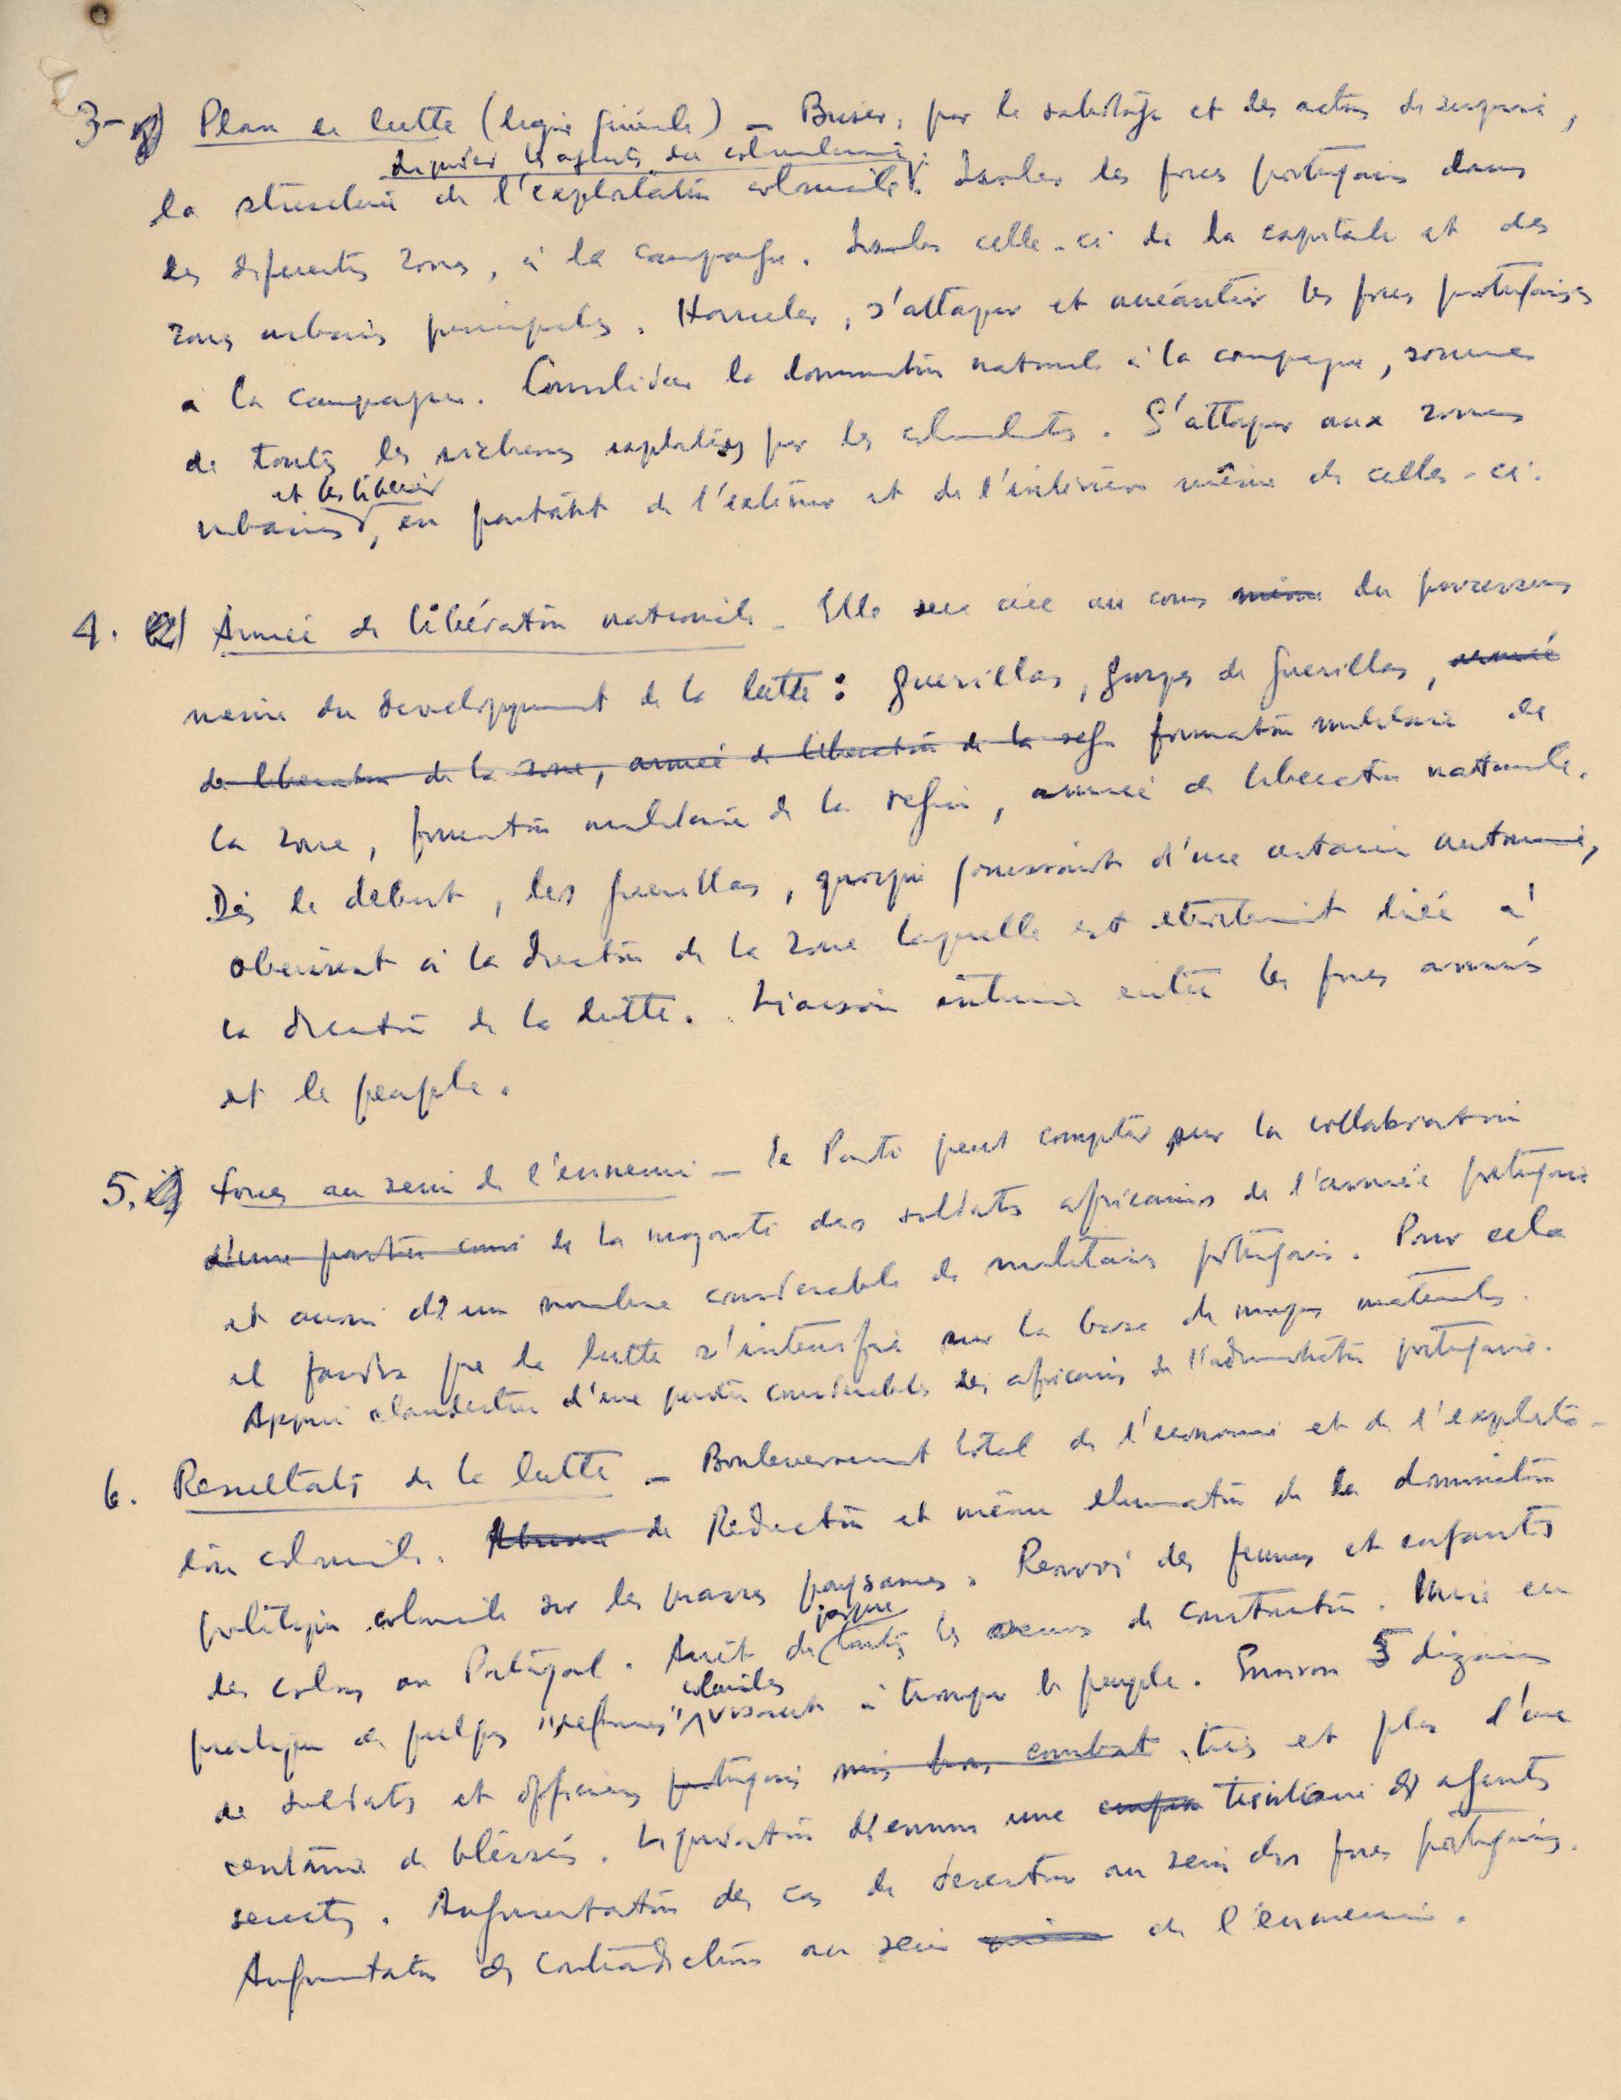 3- Plan de lutte (ligne générale) - Briser, par le sabotage et des actions de surprise,
liquider les agents du colonialisme
la structure de l'exploitation coloniale. Isoler les forces portugaises dans
les diferentes zones, à la campagne. Isoler celle-ci de la capitale et des
zones urbaines principales. Harceler, s'attaquer et anéantir les forces portugaises
à la campagne. Consolider la domination nationale à la campagne, source
de toutes les richesses exploitées par les colonialistes. S'attaquer aux zones
et les libérer
urbaines, en partant de l'extérieur et de l'intérieur même de celles-ci.
4. Armée de libération nationale - Elle sera créé au cours même du processus
même du developpement de la lutte : guerillas, groupes de guerillas, armée
de liberation de la zone, armée de liberation de la reg. formation militaire de
la zone, formation militaire de la region, armée de liberation nationale.
Dès le debut, les guerillas, quoique jouissant d'une certaine autonomie,
obeissent à la direction de la zone laquelle est etroitement liée à
la direction de la lutte. Liaison intime entre les forces armées
et le peuple.
5. Forces au sein de l'ennemi - Le Parti peut compter sur la collaboration
d'une partie de la majorité des soldats africains de l'armée portugaise
et aussi d'un nombre considerable de militaires portugais. Pour cela
il faudra que la lutte s'intensifie sur la base de moyens materiels.
Appui clandestin d'une partie considerable des africains de l'administration portugaise.
6. Resultats de la lutte - Bouleversement total de l'economie et de l'exploita-
tion coloniale. de Reduction et même elimination de la domination
politique coloniale sur les masses paysannes. Renvoi des femmes et enfants
presque
des colons au Portugal. Arrêt de toutes les oeuvres de construction. Mise en
coloniales
pratique de quelques "reformes" visant à tromper le peuple. Environ 5 dizaines
de soldats et officiers portugais mis hors combat tués et plus d'une
centaine de bléssés. Liquidation d'environ une trentaine d' agents
secrets. Augmentation des cas de desertion au sein des forces portugaises.
Augmentation des contradictions au sein même de l'ennemi.